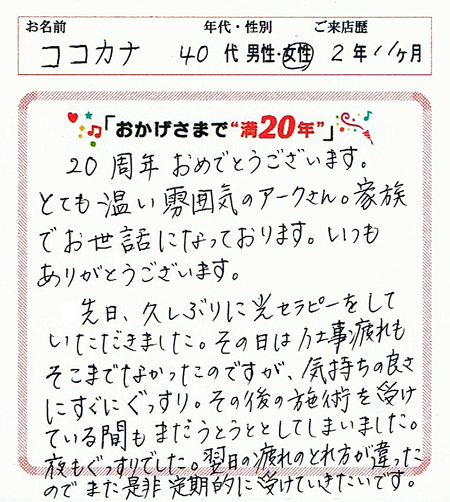 お名前 年代・性別 ご来店歴
ココカナ 40 代 男性・女性 2年11ヶ月
「おかげさまで“満20年”」
20周年おめでとうございます。
とても温い雰囲気のアークさん。家族
でお世話になっております。いつも
ありがとうございます。
先日、久しぶりに光セラピーをして
いただきました。その日は仕事疲れも
そこまでなかったのですが、気持ちの良さ
にすぐにぐっすり。その後の施術を受け
ている間もまだうとうととしてしまいました。
夜もぐっすりでした。翌日の疲れのとれ方が違った
のでまた是非定期的に受けていきたいです。